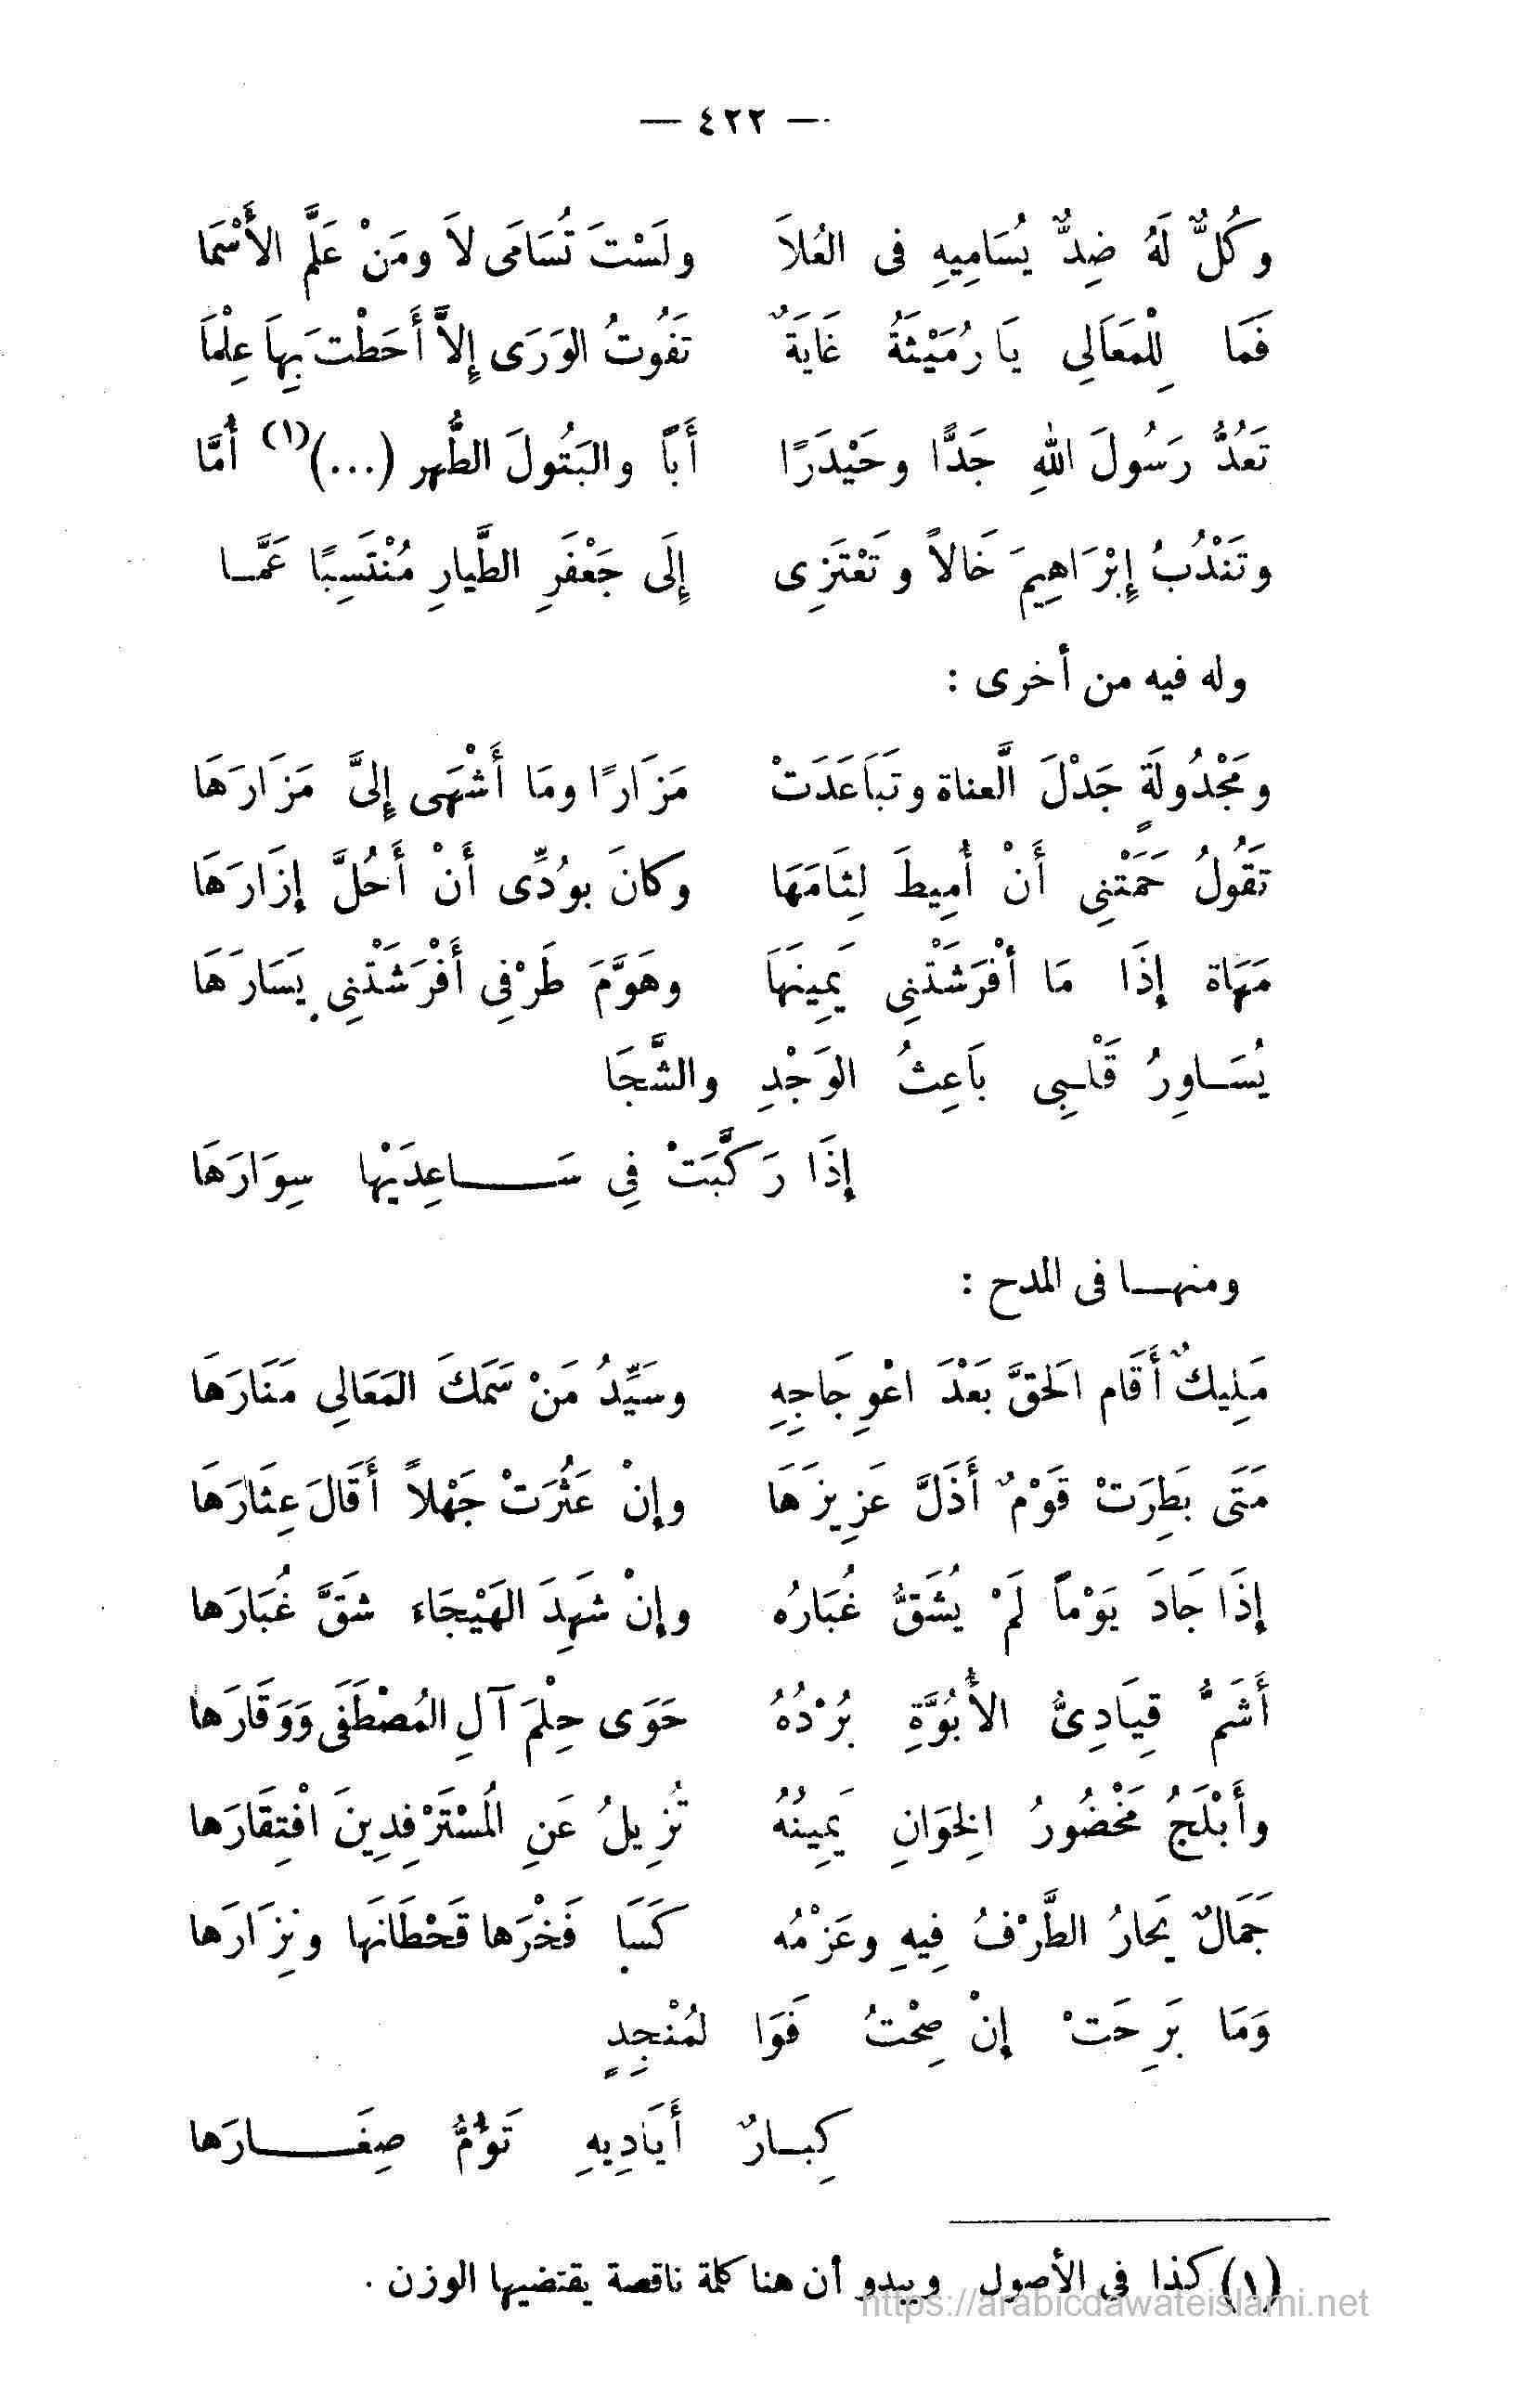 — ٤٢٢ —
وكُلٌّ لَهُ ضِدٌّ يُسَامِيهِ فى العُلاَ ولَسْتَ تُسَامَى لاَ ومَنْ عَلَّم الأَسْمَا
فَمَا لِلْمَعَالِي يَا رُمَيْثَةُ غَايَةٌ تَفُوتُ الوَرَى إِلاَّ أَحَطْتَ بِهَا عِلْمَا
تَعُدُّ رَسُولَ اللهِ جَدًّا وحَيْدَرًا أَبًا والبَتُولَ الطُّهر (...)(١) أُمَّا
وتَنْدُبُ إِبْرَاهِيمَ خَالاً وتَعْتَزِى إِلَى جَعْفَرِ الطَّيارِ مُنْتَسِبًا عَمَّا
وله فيه من أخرى :
ومَجْدُولَةٍ جَدْلَ الَّعناة وتَبَاعَدَتْ مَزَارًا ومَا أَشْهَى إِلىَّ مَزَارَهَا
تَقُولُ حَمَتْنِي أَنْ أُمِيطَ لِثَامَهَا وكَانَ بوُدِّى أَنْ أَحُلَّ إِزَارَهَا
مَهَاة إِذَا مَا أفْرَشَتْنِي يَمِينَهَا وهَوَّمَ طَرْفِى أَفْرَشَتْنِي يَسَارَهَا
يُسَاوِرُ قَلْبِي بَاعِثُ الوَجْدِ والشَّجَا
إِذَا رَكَّبَتْ فِي سَاعِدَيْها سِوَارَهَا
ومنها فى المدح :
مَلِيكٌ أَقَام الَحقَّ بَعْدَ اعْوِجَاجِهِ وسَيِّدُ مَنْ سَمَكَ المَعَالِى مَنَارَهَا
مَتَى بَطِرَتْ قَوْمٌ أَذَلَّ عَزِيزَهَا وإنْ عَثُرَتْ جَهْلاً أَقَالَ عِثَارَهَا
إِذَا جَادَ يَوْماً لَمْ يُشَقُّ غُبَارُه وإنْ شَهِدَ الهَيْجَاء شَقَّ غُبَارَها
أَشَمُّ قِيَادِىُّ الأُبُوَّةِ بُرْدُهُ حَوَى حِلْمَ آلِ المُصْطَفَى وَوَقَارَها
وأَبْلَجُ مَخْضُورُ الِخوَانِ يَمِينُهُ تُزِيلُ عَنِ المُسْتَرْفِدِينَ افْتِقَارَها
جَمَالٌ يَحارُ الطَّرْفُ فِيهِ وعَزْمُه كَسَبَا فَخْرَها قَحْطَانَها ونِزَارَها
وَمَا بَرِحَتْ إِنْ صِحْتُ فَوَا لمُنْجِدٍ
كِبارٌ أَيَادِيهِ تَؤُمُّ صِغَارَها
(١) كذا فى الأصول ويبدو أن هنا كلمة ناقصة يقتضيها الوزن .
https://arabicdawateislami.net